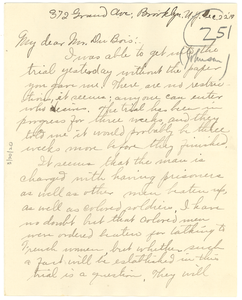 372 Grand Ave, Brooklyn, N.Y. Dec 22
251
My dear Mr. Du Bois:
I was able to get into the
trial yesterday without the paper
you gave me. There are no restric-
tions it seems; anyone can enter
who desires. The trial has been in
progress for three weeks, and they
told me it would probably be three
weeks more before they finished.
It seems that the man is
charged with having prisoners
as well as other men beaten up
as well as colored soldiers. I have
no doubt but that colored men
were ordered beaten for talking to
French women, but whether such
a fact will be established in this
trial is a question. They will